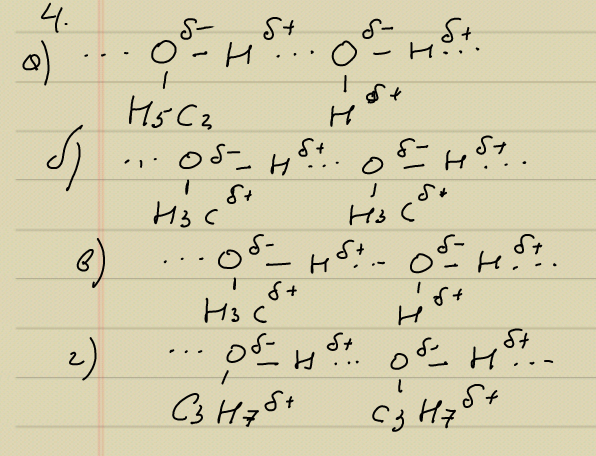 4.
а) ···· O^δ- – H^δ+ ···· O^δ- – H^δ+ ···
H5C2 H^δ+
б) ···· O^δ- – H^δ+ ···· O^δ- – H^δ+ ···
H3C^δ+ H3C^δ+
в) ···· O^δ- – H^δ+ ···· O^δ- – H^δ+ ····
H3C^δ+ H^δ+
г) ···· O^δ- – H^δ+ ···· O^δ- – H^δ+ ····
C3H7^δ+ C3H7^δ+